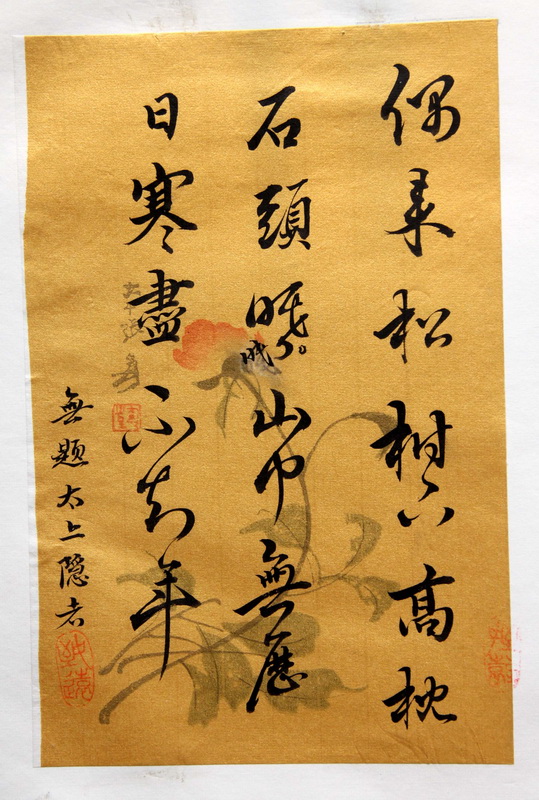 偶来松樹下高枕
石頭眠山中無歷
日寒盡不知年
無题太上隐者